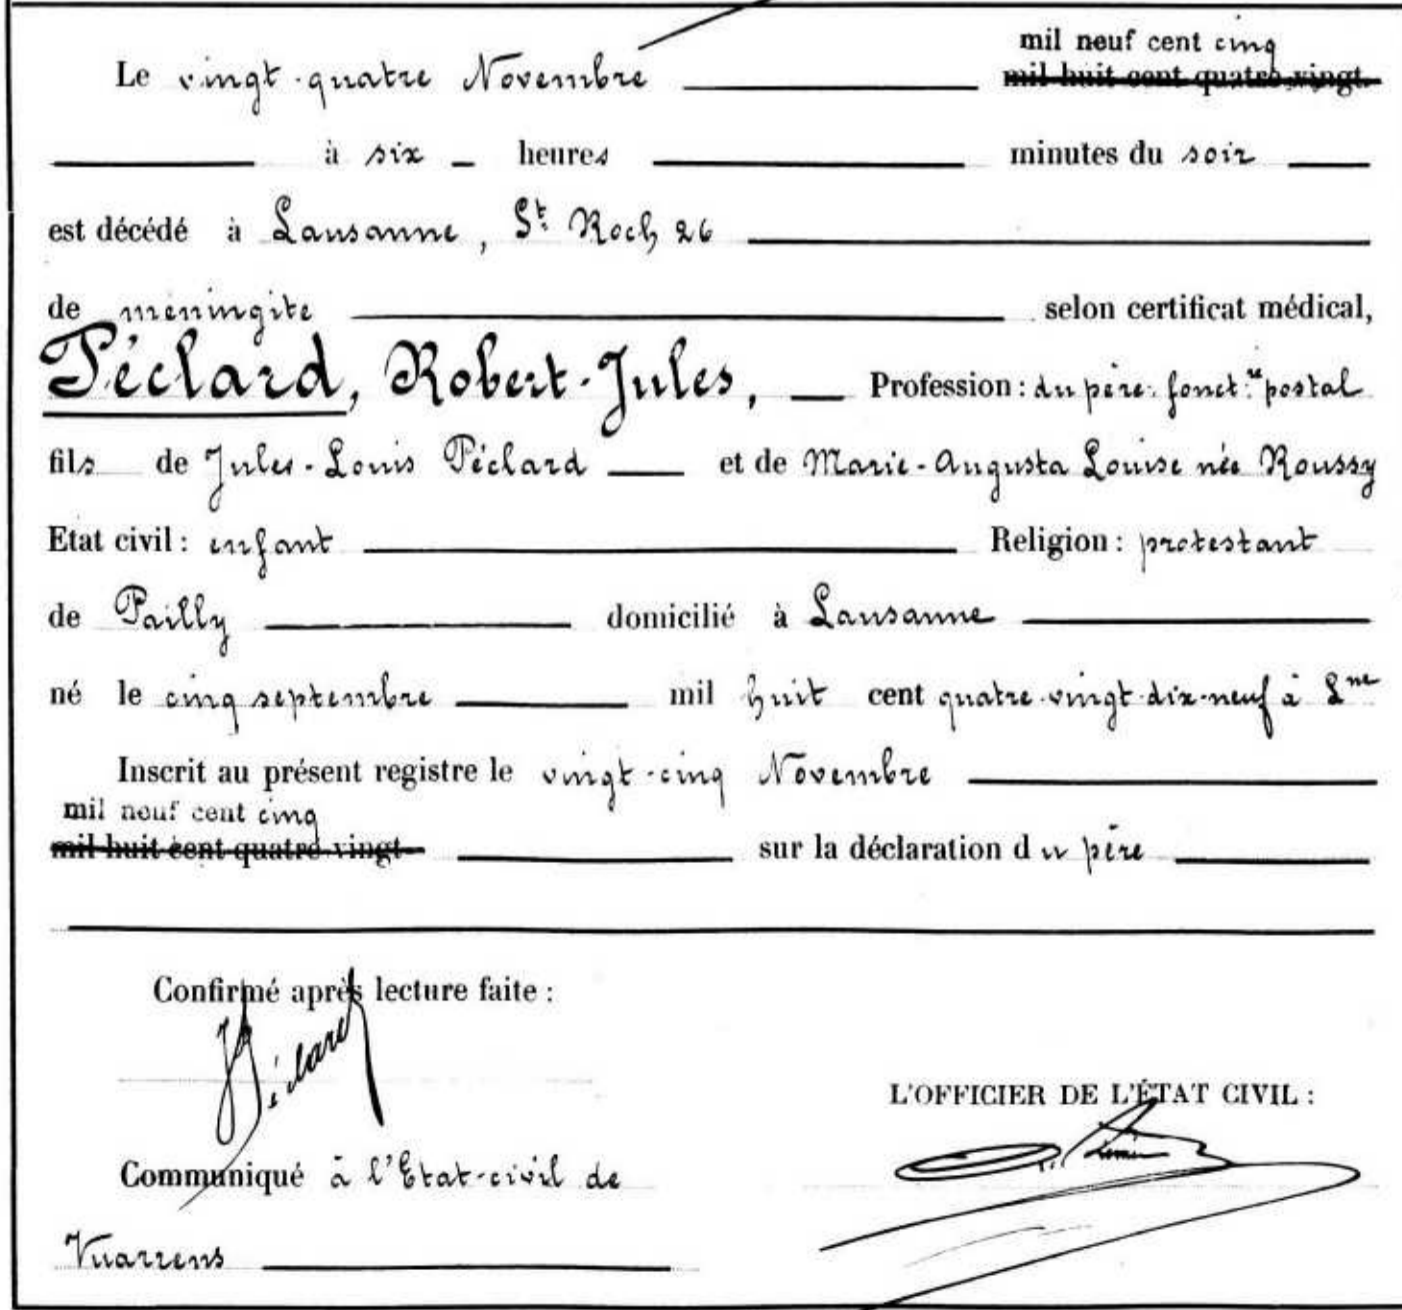 mil neuf cent cinq
Le vingt-quatre Novembre mil huit cent quatre-vingt
à six heures minutes du soir
est décédé à Lausanne, St Roch 26
de méningite selon certificat médical,
Péclard, Robert-Jules, Profession : du père: fonct.re postal
fils de Jules-Louis Péclard et de Marie-Augusta Louise née Roussy
Etat civil : enfant Religion : protestant
de Pailly domicilié à Lausanne
né le cinq septembre mil huit cent quatre-vingt-dix-neuf à Lne
Inscrit au présent registre le vingt-cinq Novembre
mil neuf cent cinq
mil huit cent quatre-vingt sur la déclaration du père
Confirmé après lecture faite :
J Péclard
L'OFFICIER DE L'ÉTAT CIVIL :
Communiqué à l'Etat-civil de
Vuarrens